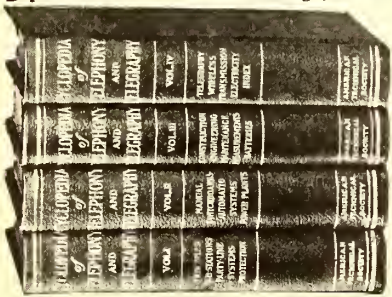 CYCLOPEDIA
of
TELEPHONY
AND
TELEGRAPHY
VOL.IV
TELEGRAPHY
WIRELESS
TRANSMISSION
ELECTRICITY
INDEX
AMERICAN
TECHNICAL
SOCIETY
CYCLOPEDIA
of
TELEPHONY
AND
TELEGRAPHY
VOL.III
CONSTRUCTION
ENGINEERING
MAINTENANCE
MEASUREMENTS
BATTERIES
AMERICAN
TECHNICAL
SOCIETY
CYCLOPEDIA
of
TELEPHONY
AND
TELEGRAPHY
VOL.II
MANUAL
SWITCHBOARDS
AUTOMATIC
SYSTEMS
POWER PLANTS
AMERICAN
TECHNICAL
SOCIETY
CYCLOPEDIA
of
TELEPHONY
AND
TELEGRAPHY
VOL.I
SUB-STATIONS
PARTY-LINE
SYSTEMS
PROTECTION
AMERICAN
TECHNICAL
SOCIETY